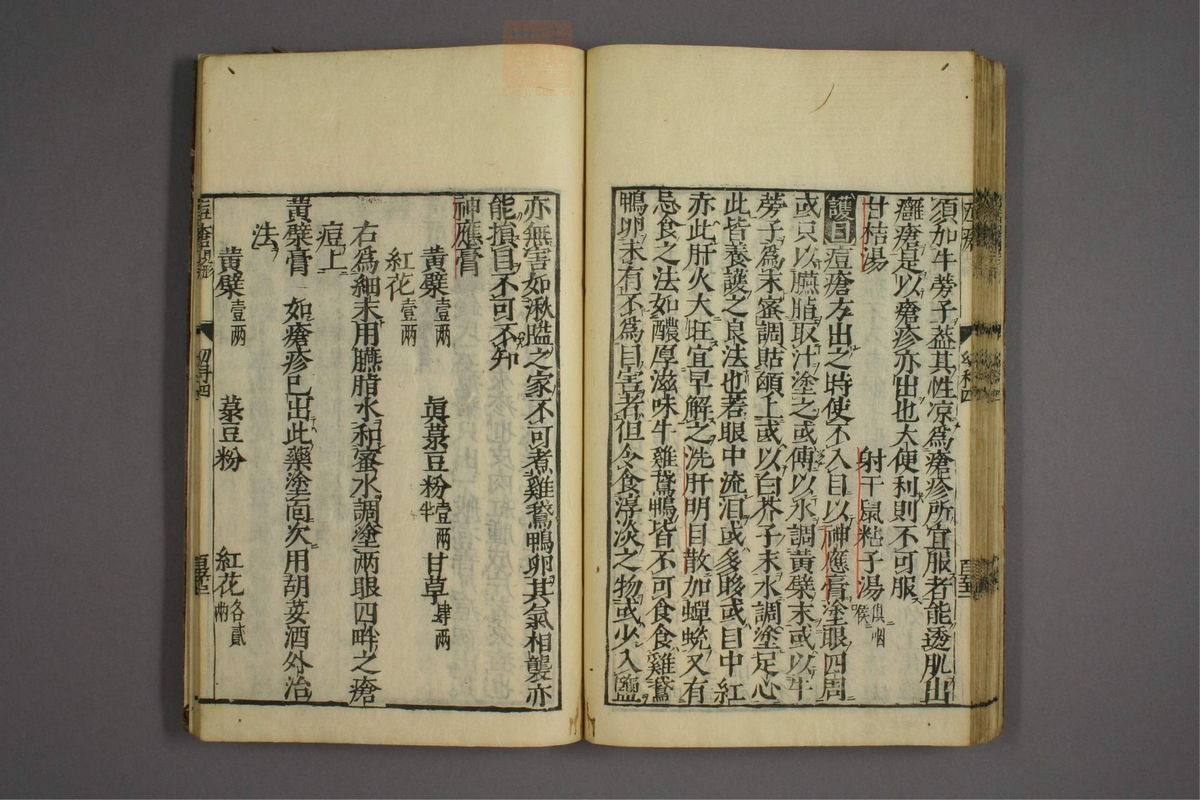 須加牛蒡子葢其性凉為瘡疹所宜服者能透肌出
癰瘡是以瘡疹亦出也大便利則不可服
甘桔湯 射干鼠粘子湯俱咽喉
護目 痘瘡方出之時使不入目以神應膏塗眼四周
或只以臙脂取汁塗之或傅以水調黄檗末或以牛
蒡子為末蜜調貼顖上或以白芥子末水調塗足心
此皆養護之良法也若眼中流泪或多眵或目中紅
亦此肝火大旺宜早解之洗肝明目散加蟬蛻又有
忌食之法如醲厚滋味牛雞鵞鴨皆不可食食雞鵞
鴨卵未有不為目害者但令食淳淡之物或少入鹽
亦無害如湫隘之家不可煮雞鵞鴨卵其氣相襲亦
能損目不可不知
神應膏
黄檗壹兩 眞菉豆粉壹兩半 甘草肆兩
紅花壹兩
右為細末用臙脂水和蜜水調塗兩眼四畔之瘡
痘上
黄檗膏 如瘡疹已出此藥塗面次用胡荽酒外治
法
黄檗 菉豆粉 紅花各貳兩